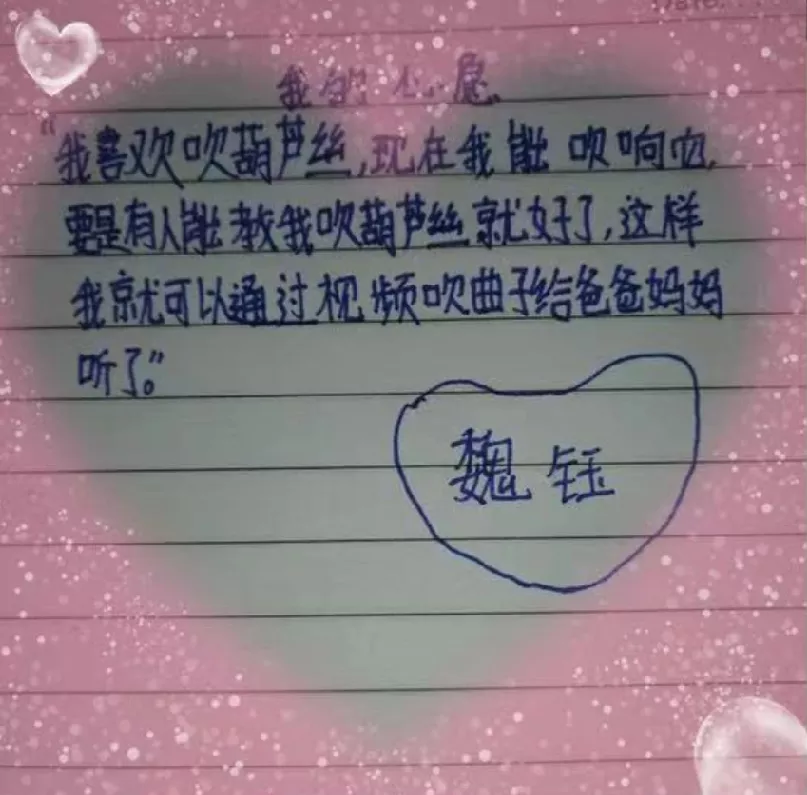 我的心愿
"我喜欢吹葫芦丝,现在我能吹响它,
要是有人能教我吹葫芦丝就好了,这样
我就可以通过视频吹曲子给爸爸妈妈
听了。"
魏钰